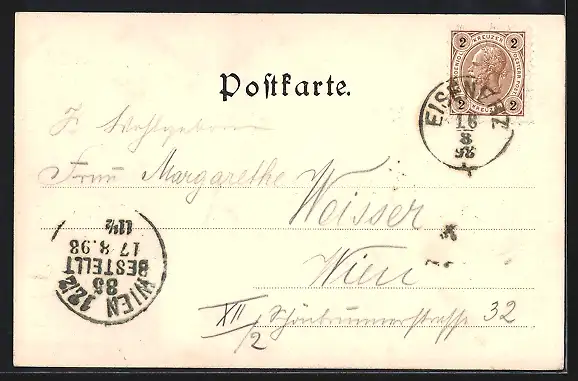 Postkarte.
2 KREUZER 2
2 KREUZER 2
EISENERZ
16
8
98
Wohlgeboren
Frau Margarethe
Weisser
Wien
XII/2 Schönbrunnerstrasse 32
WIEN 12/2
85
BESTELLT
17.8.98
11½